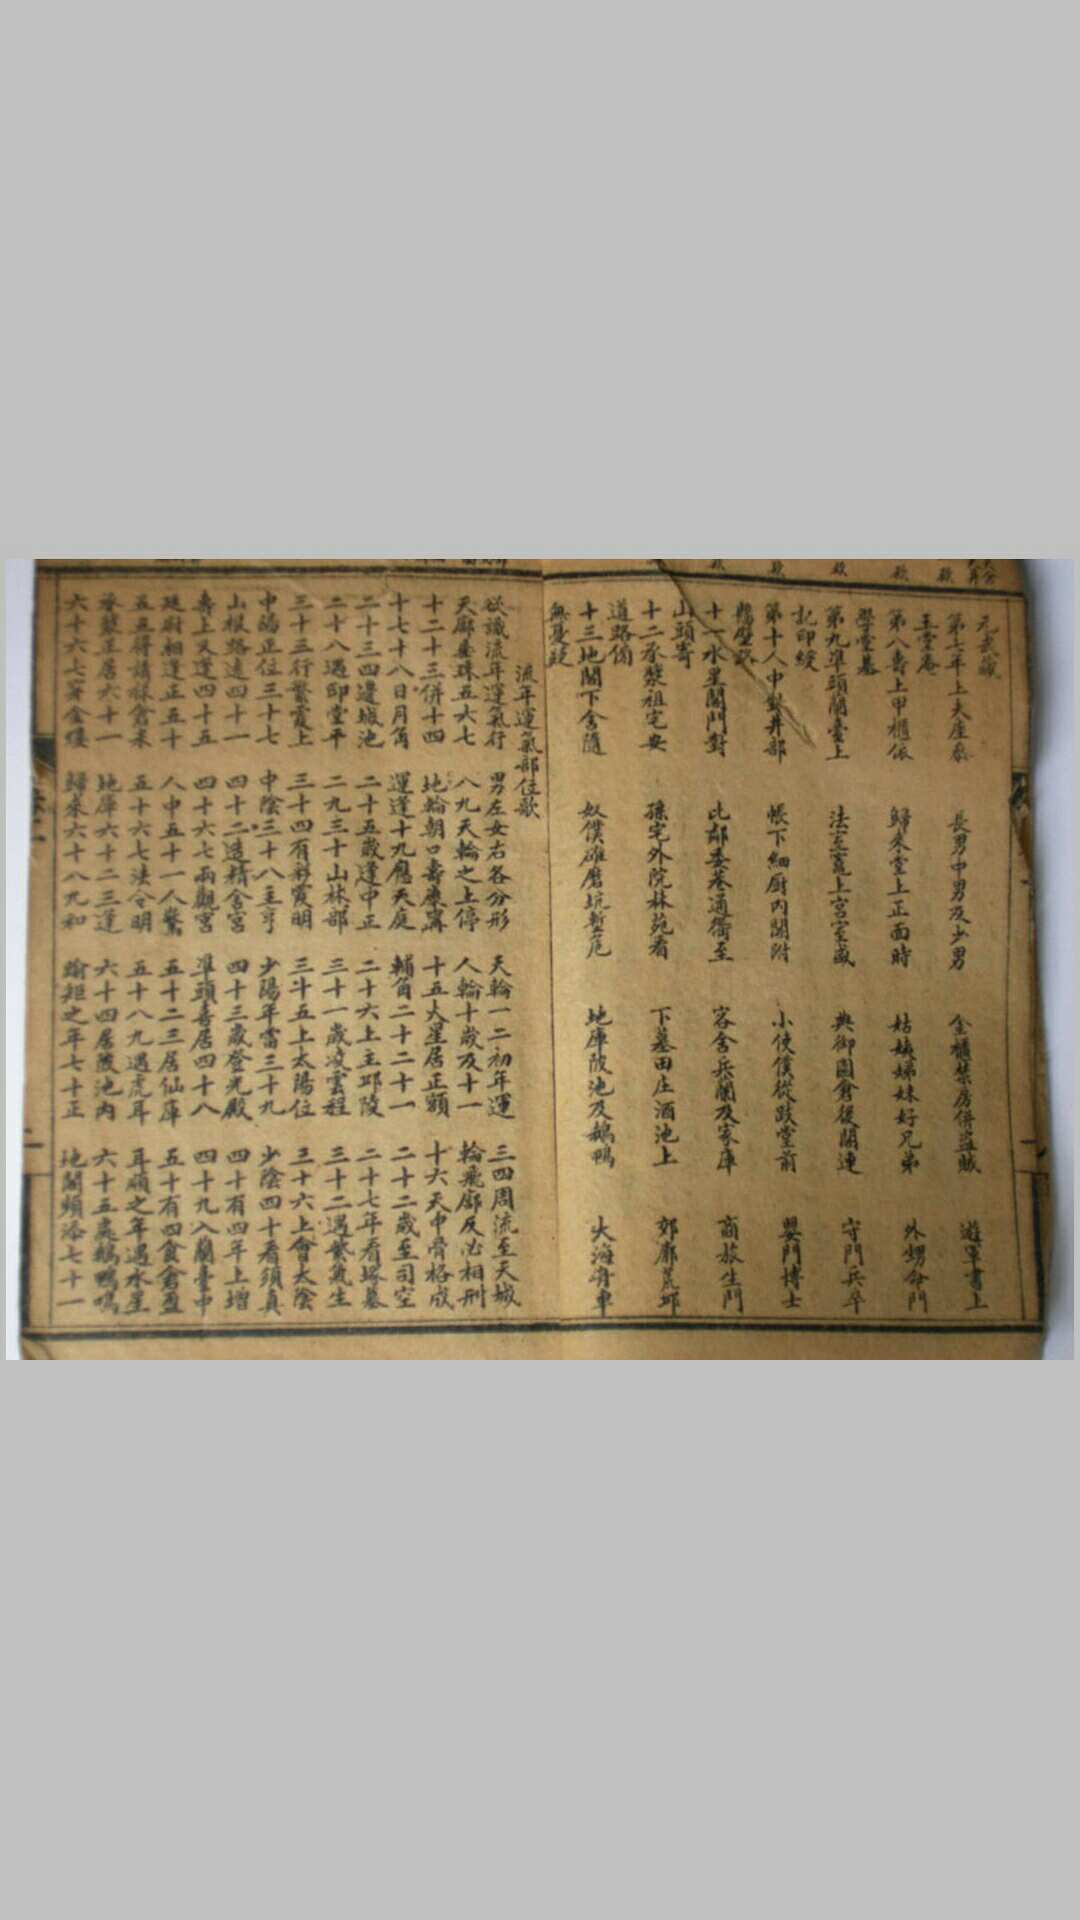 元武藏
第七年上夫座參 長男中男及少男 金櫃禁房併盜賊 遊軍書上
玉堂庵
第八壽上甲櫃依 歸來堂上正面時 姑姨姊妹好兄弟 外甥命門
學堂基
第九準頭蘭臺上 法至竈上宮室盛 典御園倉後閣連 守門兵卒
記印綬
第十人中對井部 帳下細廚內閣附 小使僕從跂堂前 嬰門博士
懸壁路
十一水星閣門對 比鄰委巷通衢至 客舍兵蘭及家庫 商旅生門
山頭寄
十二承漿祖宅安 孫宅外院林苑看 下墓田庄酒池上 郊廓荒邱
道路傍
十三地閣下舍隨 奴僕碓磨坑塹危 地庫陂池及鵝鴨 大海舟車
無憂疑
流年運氣部位歌
欲識流年運氣行 男左女右各分形 天輪一二初年運 三四周流至天城
天廓垂珠五六七 八九天輪之上停 人輪十歲及十一 輪飛廓反必相刑
十二十三併十四 地輪朝口壽康寧 十五火星居正額 十六天中骨格成
十七十八日月角 運逢十九應天庭 輔角二十二十一 二十二歲至司空
二十三四邊城池 二十五歲逢中正 二十六上主邱陵 二十七年看塚墓
二十八遇印堂平 二九三十山林部 三十一歲凌雲程 三十二遇紫氣生
三十三行繁霞上 三十四有彩霞明 三十五上太陽位 三十六上會太陰
中陽正位三十七 中陰三十八主亨 少陽年當三十九 少陰四十看須真
山根路遠四十一 四十二造精舍宮 四十三歲登光殿 四十有四年上增
壽上又逢四十五 四十六七兩觀宮 準頭喜居四十八 四十九入蘭臺中
廷尉相逢正五十 人中五十一人驚 五十二三居仙庫 五十有四食倉盈
五五得請祿倉米 五十六七法令明 五十八九遇虎耳 耳順之年遇水星
承漿正居六十一 地庫六十二三逢 六十四居陂池內 六十五處鵝鴨鳴
六十六七穿金縷 歸來六十八九和 踰矩之年七十正 地閣頻添七十一